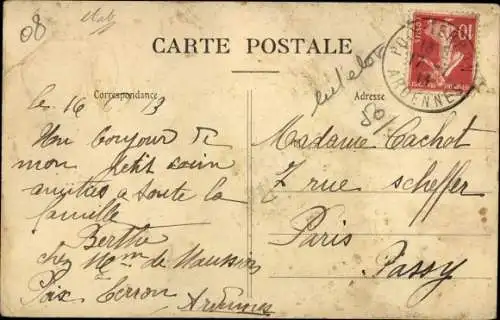 08
CARTE POSTALE
Correspondance
Adresse
le 16 13
Un bonjour de
mon petit coin
amitiés a toute la
famille
Berthe
chez Mme de Maussion
Poix Terron
Ardennes
Madame Cachot
7 rue Scheffer
Paris
Passy
50
10
ARDENNES